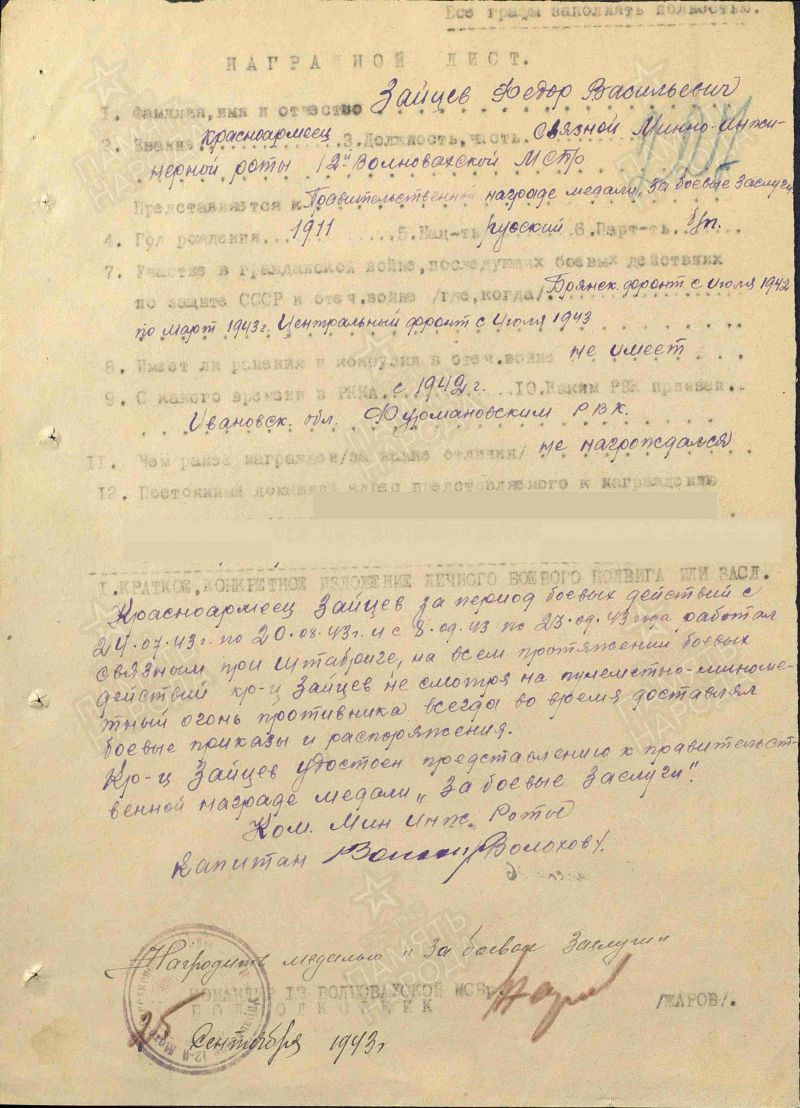 Все графы заполнять полностью.
НАГРАДНОЙ ЛИСТ.
1. Фамилия, имя и отчество Зайцев Федор Васильевич
2. Звание красноармеец 3. Должность, часть связной Минно-инжи-
нерной роты 12й Волновахской МСбр
Представляется к Правительственной награде медали „За боевые заслуги"
4. Год рождения 1911 5. Нац-ть русский 6. Парт-ть б/п.
7. Участие в гражданской войне, последующих боевых действиях
по защите СССР и отеч. войне /где, когда/ Брянск. фронт с июля 1942
по март 1943г. Центральный фронт с июля 1943
8. Имеет ли ранения и контузии в отеч. войне не имеет
9. С какого времени в РККА с 1942 г. 10. Каким РВК призван
Ивановск. обл. Фурмановским РВК.
11. Чем ранее награжден /за какие отличия/ не награждался
12. Постоянный домашний адрес представляемого к награждению
I. КРАТКОЕ, КОНКРЕТНОЕ ИЗЛОЖЕНИЕ ЛИЧНОГО БОЕВОГО ПОДВИГА ИЛИ ЗАСЛ.
Красноармеец Зайцев за период боевых действий с
24.07.43г. по 20.08.43г. и с 8.09.43 по 23.09.43 года работал
связным при штабриге, на всем протяжении боевых
действий кр-ц Зайцев не смотря на пулеметно-миноме-
тный огонь противника всегда во время доставлял
боевые приказы и распоряжения.
Кр-ц Зайцев удостоен представлению к правительст-
венной награде медали „За боевые Заслуги".
Ком. Мин инж. Роты
Капитан Волохов/.
Наградить медалью „За боевые Заслуги"
КОМАНДИР 12 ВОЛНОВАХСКОЙ МСБР
ПОДПОЛКОВНИК /ЖАРОВ/.
25 Сентября 1943г